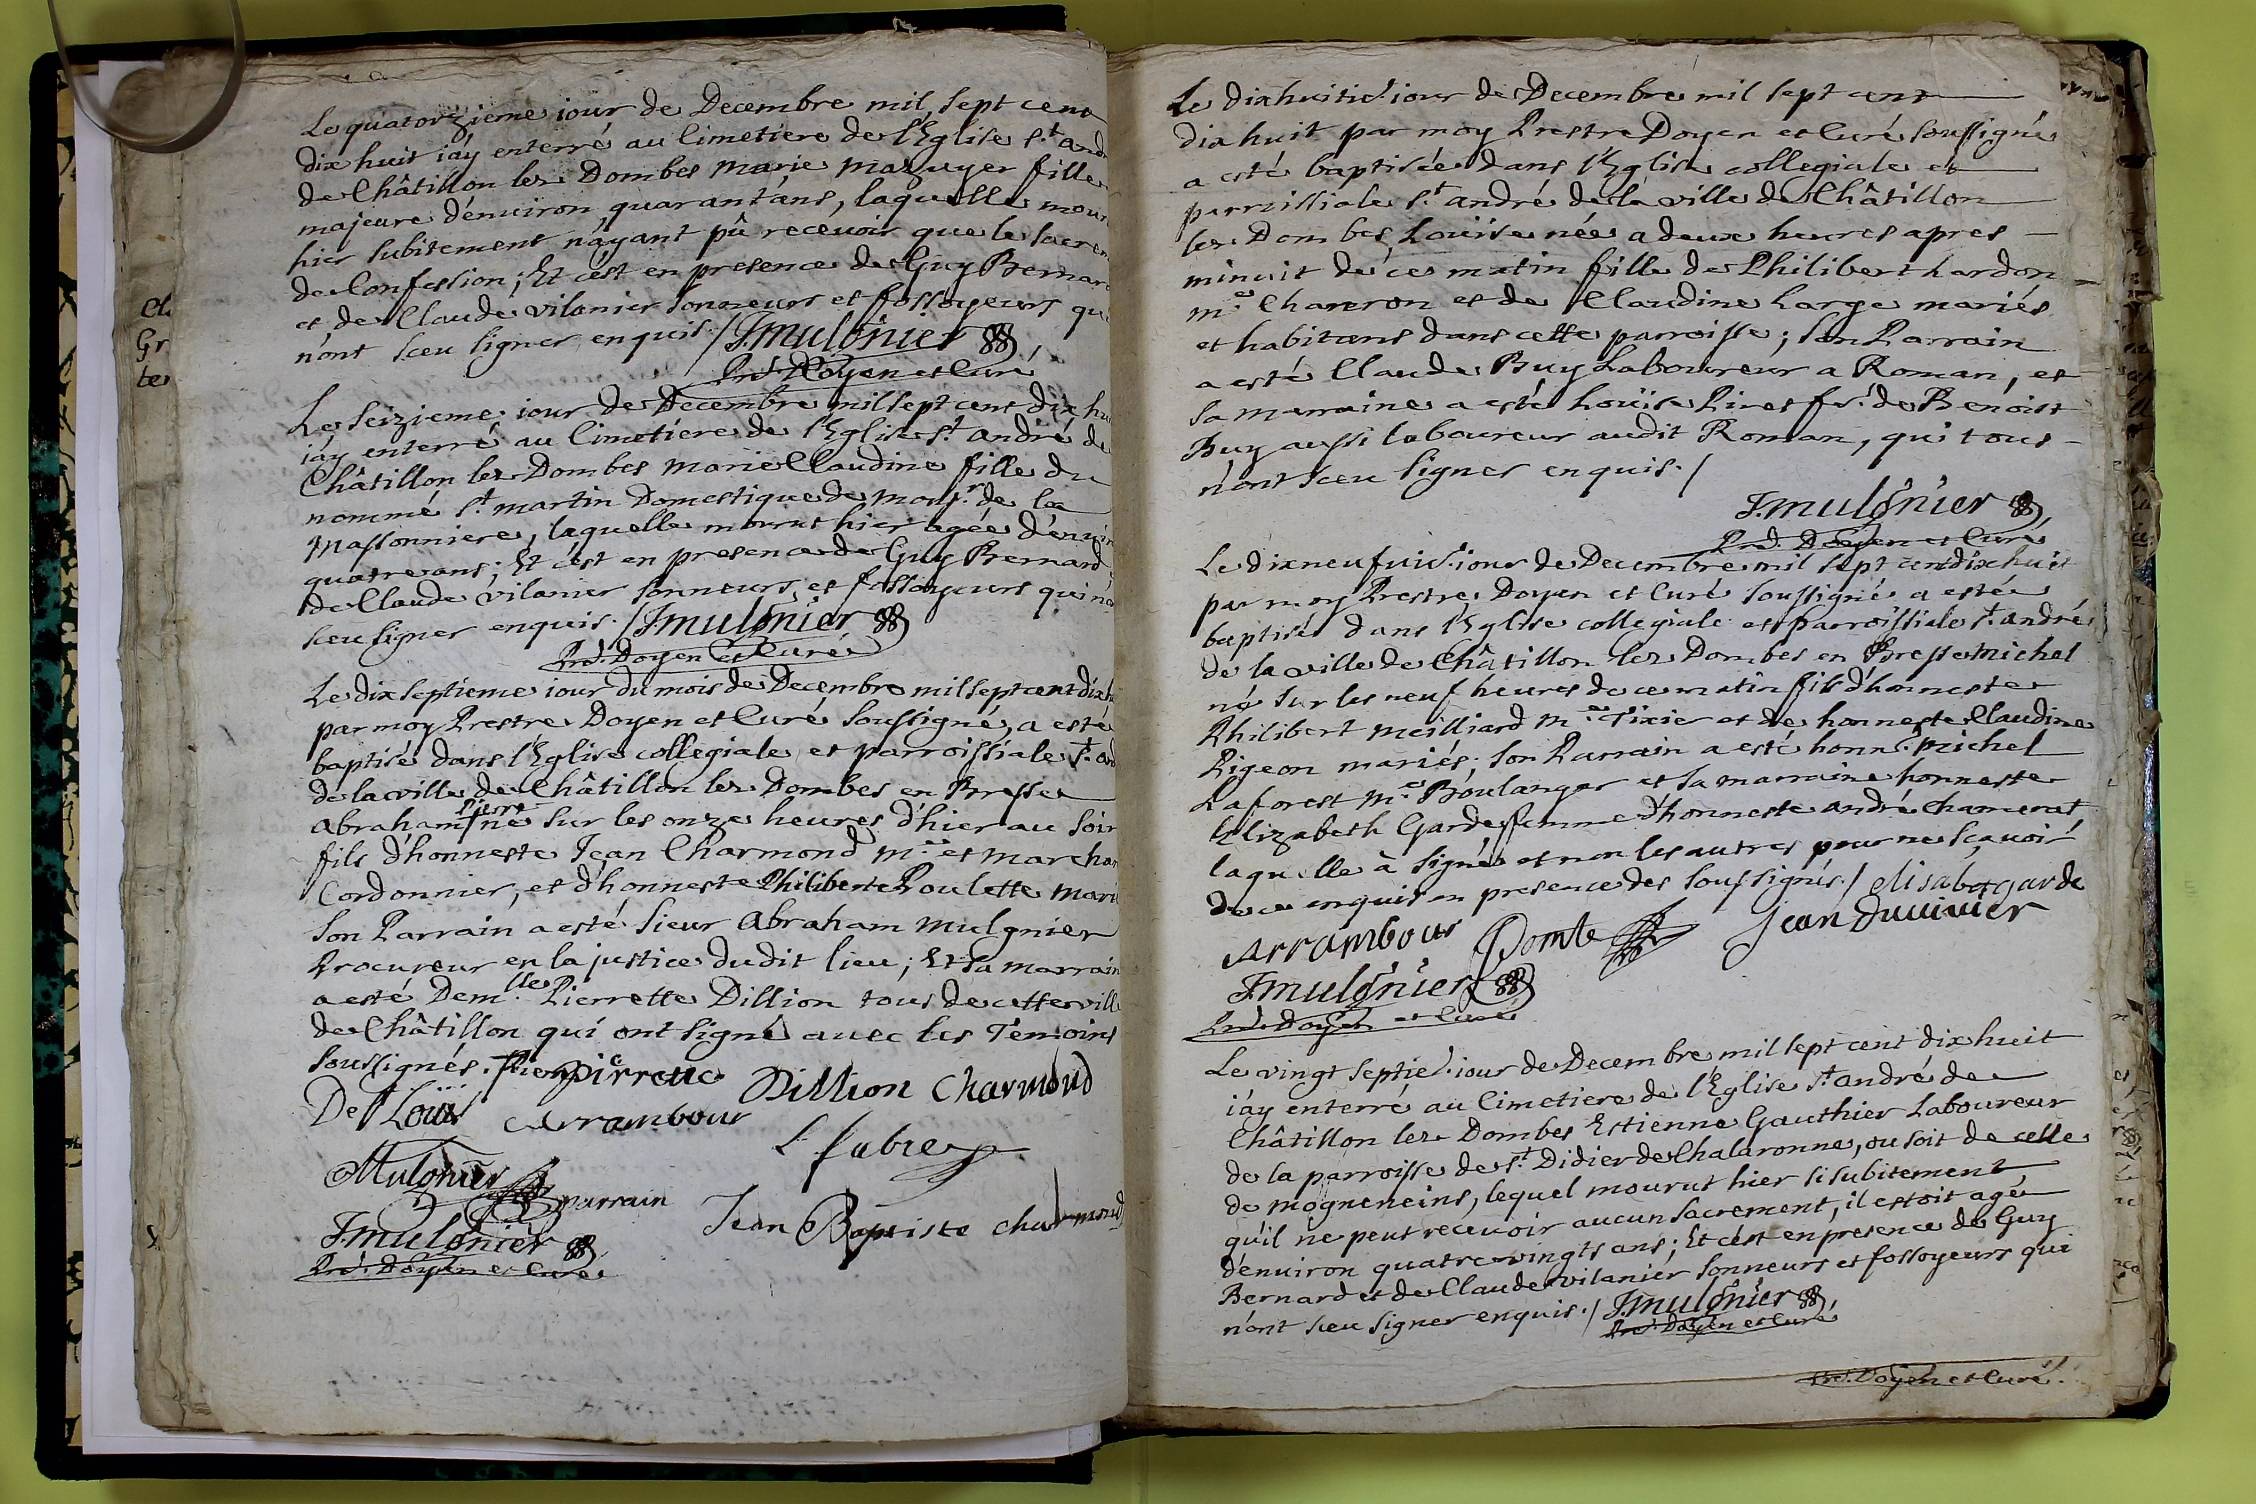 Le quatorzieme iour de Decembre mil sept cent
dix huit iáy enterré au Cimetiere de l'Eglise St. And
de Châtillon lez Dombes Marie Mazuyer fille
majeure d'enuiron quarant'ans, laquelle mour
hier subitement n'áyant pû receuoir que le sacrem
de Confession; Et c'est en presence de Guy Bernard
et de Claude vilanier sonneurs et fossoyeurs qui
n'ont sceu signer enquis./ J.mulgnier
Prê. Doyen et Curé
Le Seizieme iour de Decembre mil sept cent dix hui
iáy enterré au Cimetiere de l'Eglise St. André de
Châtillon lez Dombes Marie Claudine fille du
nommé St. martin Domestique de Mousr. de la
Massonniere, laquelle mourut hier agée d'enuir
quatre ans; Et c'est en presence de Guy Bernard
de Claude vilanier sonneurs et fossoyeurs qui n'o
sceu signer enquis./ J.mulgnier
Prê. Doyen et Curé
Le dix septieme iour du mois de Decembre mil sept cent dix h
par moy Prestre Doyen et Curé soussigné, a esté
baptisé dans l'Eglise collegiale et parroissiale St. And
de la ville de Châtillon lez Dombes en Bresse
Pierre
Abraham / né sur les onze heures d'hier au soir
fils d'honneste Jean Charmond me. et marchan
Cordonnier, et d'honneste Philiberte Poulette marié
son Parrain a esté sieur Abraham Mulgnier
Procureur en la justice dudit lieu; Et sa marrain
a esté Demlle. Pierrette Dillion tous de cette ville
de Châtillon qui ont signé auec les Témoins
soussignés. / pierrette Dillion Charmond
De St Louis Arrambour
L fabre
AMulgnier parrain
Jean Baptiste charmond
J.mulgnier
Prê. Doyen et Curé
Cl
Gr
te
Le dixhuitie. iour de Decembre mil sept cent
dix huit par moy Prestre Doyen et Curé soussigné
a esté baptisée dans l'Eglise collegiale et
parroissiale St. andré de la ville de Châtillon
lez Dombes Loüise née a deux heures apres
minuit de ce matin fille de Philibert Lardon
me. Charron et de Claudine Large mariés
et habitans dans cette parroisse; son Parrain
a esté Claude Buy Laboureur a Roman, et
sa marraine a esté Loüise Piret fe. de Benoist
Buy aussi laboureur audit Roman, qui tous
n'ont sceu signer enquis./
J.mulgnier
Prê. Doyen et Curé
Le dixneufuie. iour de Decembre mil sept cent dixhuit
par moy Prestre Doyen et Curé soussigné a esté
baptisé dans l'Eglise collegiale et parroissiale St. andré
de la ville de Châtillon lez Dombes en Bresse Michel
né sur les neuf heures de ce matin fils d'honneste
Philibert Meilliard me. Tixier et de honneste Claudine
Pigeon mariés; son Parrain a esté honne. Michel
Laforest me. Boulanger et sa marraine honneste
Elizabeth Garde femme d'honneste andré Chamerat
laquelle à signé et non les autres pour ne sçauoir
de ce enquis en presence des soussignés./ elisabet garde
Arrambour Pomte Jean duuiuier
J.mulgnier
Prê. Doyen et Curé
Le vingt septie. iour de Decembre mil sept cent dix huit
iáy enterré au Cimetiere de l'Eglise St. andré de
Châtillon lez Dombes Estienne Gauthier Laboureur
de la parroisse de St. Didier de Chalaronne, ou soit de celle
de mogneneins, lequel mourut hier si subitement
qu'il ne peut receuoir aucun sacrement, il estoit agé
d'enuiron quatre vingts ans; Et c'est en presence de Guy
Bernard et de Claude vilanier sonneurs et fossoyeurs qui
n'ont sceu signer enquis./ J.mulgnier
Prê. Doyen et Curé
Prê. Doyen et Curé.